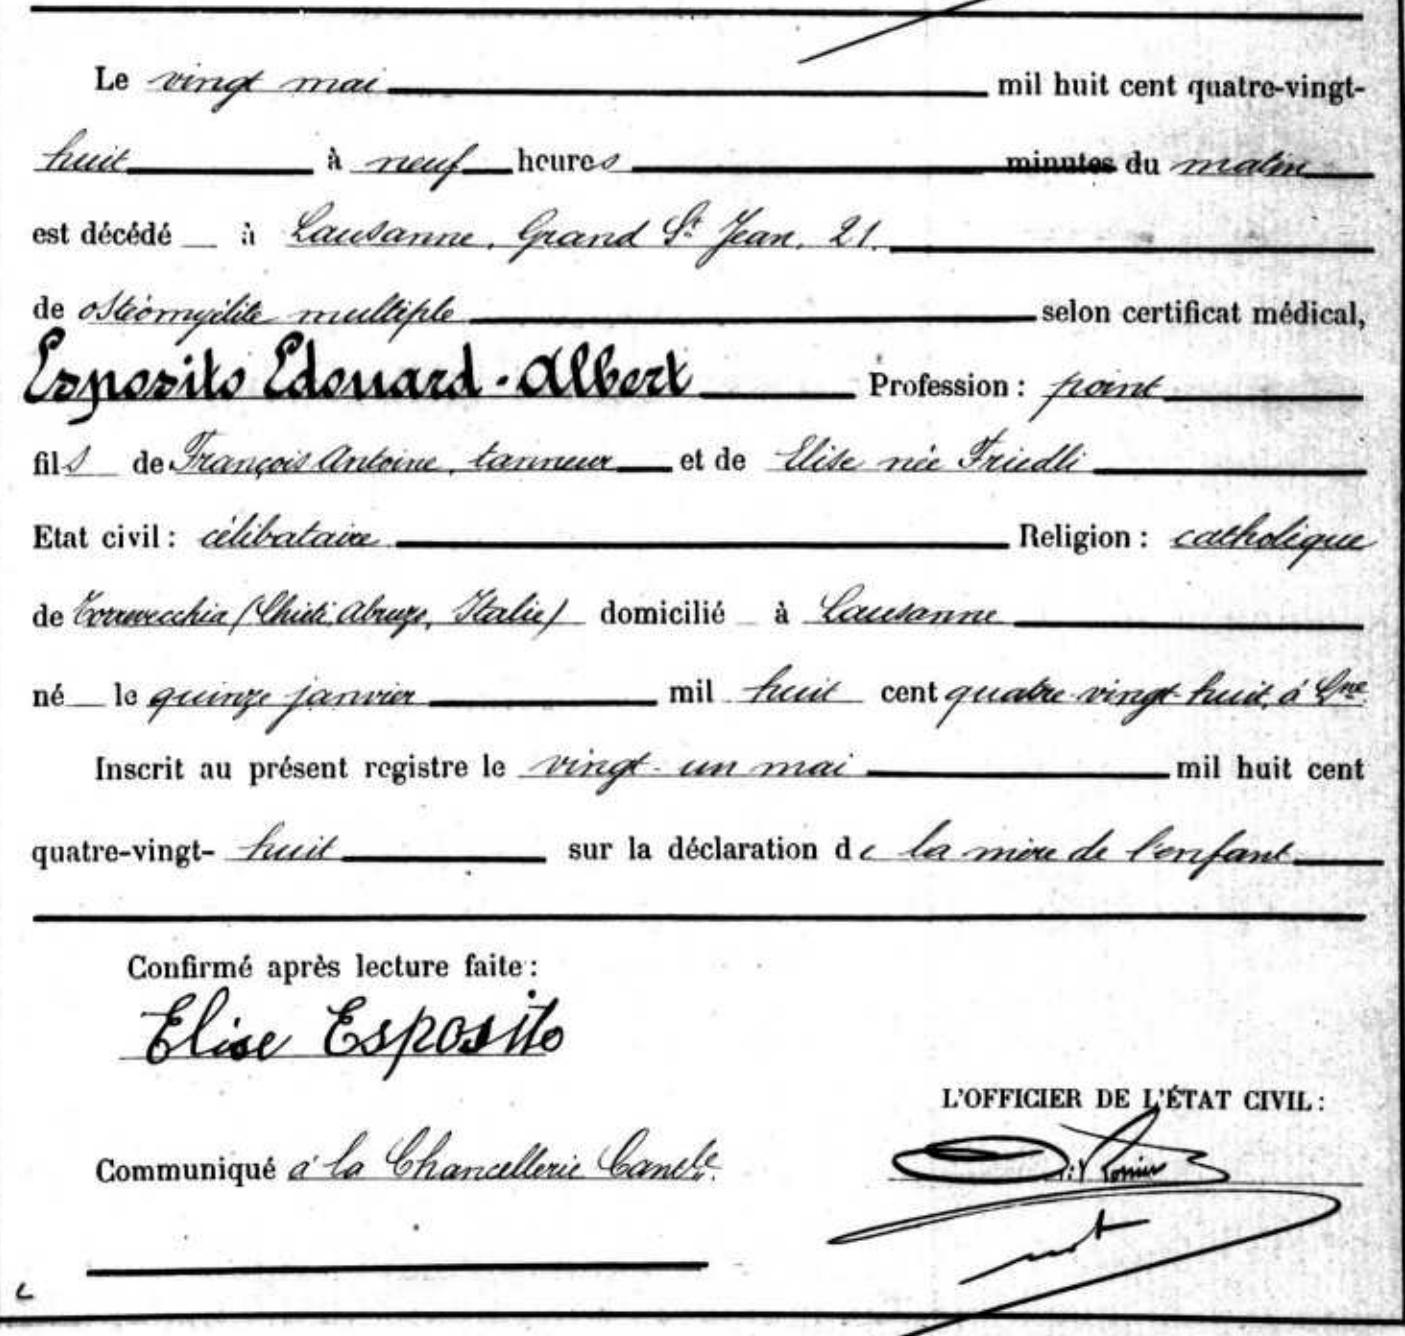 Le vingt mai mil huit cent quatre-vingt-
huit à neuf heures minutes du matin
est décédé à Lausanne, Grand St Jean, 21.
de ostéomyélite multiple selon certificat médical,
Esposito Edouard-Albert Profession : point
fils de François Antoine, tanneur et de Elise née Friedli
Etat civil : célibataire Religion : catholique
de Torrevecchia (Chieti, Abruzo, Italie) domicilié à Lausanne
né le quinze janvier mil huit cent quatre vingt huit, à Lne
Inscrit au présent registre le vingt-un mai mil huit cent
quatre-vingt- huit sur la déclaration de la mère de l'enfant
Confirmé après lecture faite :
Elise Esposito
L'OFFICIER DE L'ÉTAT CIVIL :
Communiqué à la Chancellerie Cantle.